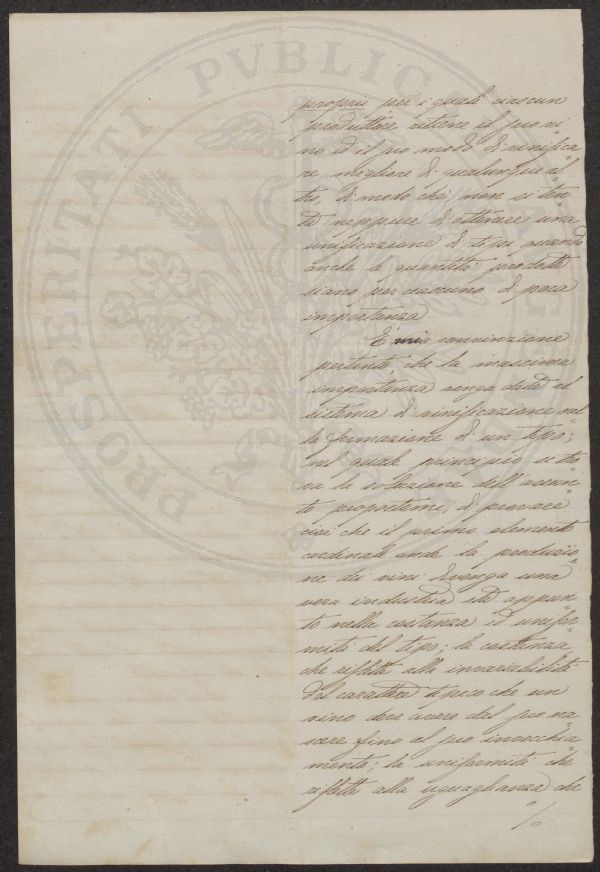 PROSPERITATI PVBLICAE
proprii per i quali ciascun
produttore ritiene il suo vi=
no ed il suo modo di vinifica=
re migliore di qualunque al=
tro, di modo che non si ten=
ta neppure di ottenere una
unificazione di tipi quando
anche le quantità prodotte
siano per ciascuno di poca
importanza.
È mia convinzione
pertanto che la massima
importanza venga data al
sistema di vinificazione nel=
la formazione di un tipo;
nel quale principio si tro=
va la soluzione dell'assun=
to propostomi, di provare
cioè che il primo elemento
cardinale onde la produzio=
ne dei vini divenga una
vera industria sta appun=
to nella costanza ed unifor=
mità del tipo; la costanza
che riflette alla invariabilità
del carattere tipico che un
vino deve avere dal suo na=
scere fino al suo invecchia=
mento; la uniformità che
riflette alla uguaglianza che
%